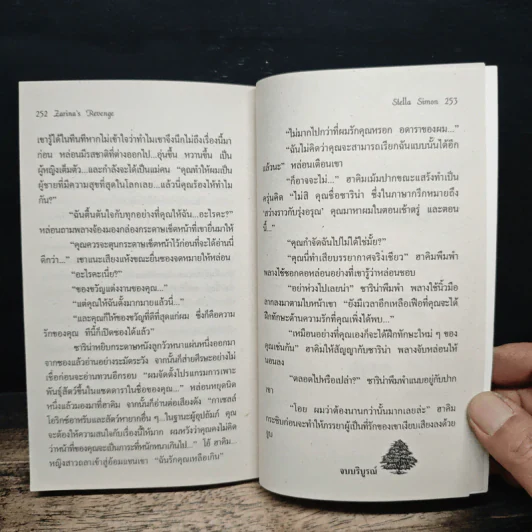 252 Zarina's Revenge
เขารู้ได้ในทันทีหากไม่เข้าใจว่าทำไมเขาจึงนึกไม่ถึงเรื่องนี้มา
ก่อน หล่อนมีรสชาติที่ต่างออกไป...อุ่นขึ้น หวานขึ้น เป็น
ผู้หญิงเต็มตัว...และกำลังจะได้เป็นแม่คน “คุณทำให้ผมเป็น
ผู้ชายที่มีความสุขที่สุดในโลกเลย...แล้วนี่คุณร้องไห้ทำไม
กัน?”
“ฉันตื้นตันใจกับทุกอย่างที่คุณให้ฉัน...อะไรคะ?”
หล่อนถามพลางจ้องมองกล่องกระดาษเช็ดหน้าที่เขายื่นมาให้
“คุณควรจะตุนกระดาษเช็ดหน้าไว้ก่อนที่จะได้อ่านนี่
ดีกว่า...” เขาแนะเสียงแห้งขณะยื่นซองจดหมายให้หล่อน
“อะไรคะเนี่ย?”
“ของขวัญแต่งงานของคุณ...”
“แต่คุณให้ฉันตั้งมากมายแล้วนี่...”
“และคุณก็ให้ของขวัญที่ดีที่สุดแก่ผม ซึ่งก็คือความ
รักของคุณ ทีนี้ก็เปิดซองได้แล้ว”
ซาริน่าหยิบกระดาษหนังลูกวัวหนาแผ่นหนึ่งออกมา
จากซองแล้วอ่านอย่างระมัดระวัง จากนั้นก็ส่ายศีรษะอย่างไม่
เชื่อก่อนจะอ่านทวนอีกรอบ “ผมจัดตั้งโปรแกรมการเพาะ
พันธุ์สัตว์ขึ้นในแซดดาราในชื่อของคุณ...” หล่อนหยุดนิด
หนึ่งแล้วมองมาที่ฮาคิม จากนั้นก็อ่านต่อเสียงดัง “กาเซลล์
โอริกซ์อาหรับและสัตว์หายากอื่น ๆ...ในฐานะผู้อุปถัมภ์ คุณ
จะต้องให้ความสนใจกับเรื่องนี้ให้มาก ผมหวังว่าคุณคงไม่คิด
ว่าหน้าที่ของคุณจะเป็นภาระที่หนักหนาเกินไป...” โอ้ ฮาคิม...
หญิงสาวถลาเข้าสู่อ้อมแขนเขา “ฉันรักคุณเหลือเกิน”
Stella Simon 253
“ไม่มากไปกว่าที่ผมรักคุณหรอก อดาราของผม...”
“ฉันไม่คิดว่าคุณจะสามารถเรียกฉันแบบนั้นได้อีก
แล้วนะ” หล่อนเตือนเขา
“ก็อาจจะไม่...” ฮาคิมเม้มปากขณะแสร้งทำเป็น
ครุ่นคิด “ไม่สิ คุณชื่อซาริน่า ซึ่งในภาษากรีกหมายถึง
‘สว่างราวกับรุ่งอรุณ’ คุณมาหาผมในตอนเช้าตรู่ และตอน
นี้...”
“คุณกำจัดฉันไปไม่ได้ใช่มั้ย?”
“คุณนี่ทำเสียบรรยากาศจริงเชียว” ฮาคิมพึมพำ
พลางไซ้ซอกคอหล่อนอย่างที่เขารู้ว่าหล่อนชอบ
“อย่าห่วงไปเลยน่า” ซาริน่าพึมพำ พลางใช้นิ้วมือ
ลากลงมาตามใบหน้าเขา “ยังมีเวลาอีกเหลือเฟือที่คุณจะได้
ฝึกทักษะด้านความรักที่คุณเพิ่งได้พบ...”
“เหมือนอย่างที่คุณเองก็จะได้ฝึกทักษะใหม่ ๆ ของ
คุณเช่นกัน” ฮาคิมให้สัญญากับซาริน่า พลางจับหล่อนให้
นอนลง
“ตลอดไปหรือเปล่า?” ซาริน่าพึมพำแนบอยู่กับปาก
เขา
“โอย ผมว่าต้องนานกว่านั้นมากเลยล่ะ” ฮาคิม
กระซิบก่อนจะทำให้ภรรยาผู้เป็นที่รักของเขาเงียบเสียงลงด้วย
จูบ
จบบริบูรณ์